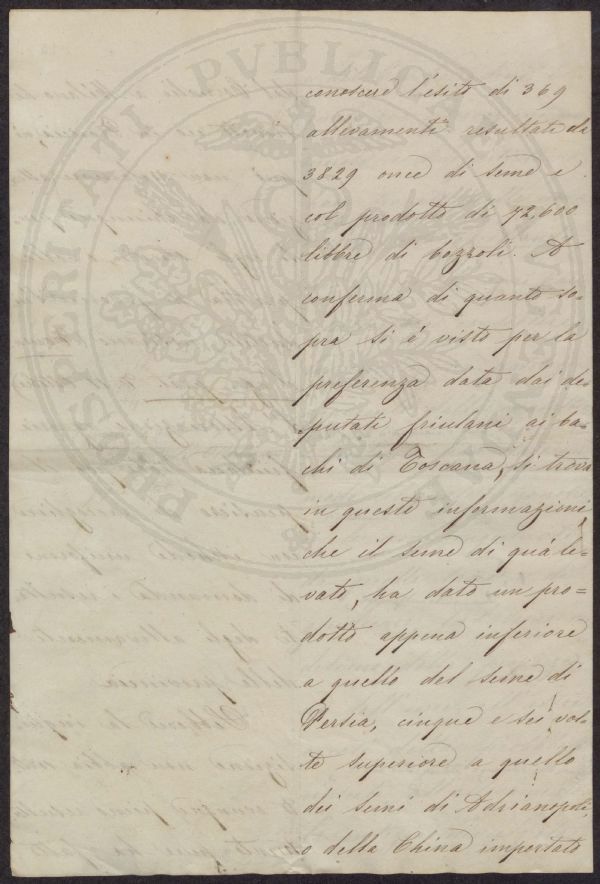 conoscere l'esito di 369
allevamenti resultati da
3829 once di seme e
col prodotto di 72,600
libbre di bozzoli. A
conferma di quanto so=
pra si è visto per la
preferenza data dai de=
putati friulani ai ba=
chi di Toscana, si trova
in queste informazioni,
che il seme di quà le=
vato, ha dato un pro=
dotto appena inferiore
a quello del seme di
Persia, cinque e sei vol=
te superiore a quello
dei semi di Adrianopoli,
o della China importato
PROSPERITATI PVBLICAE